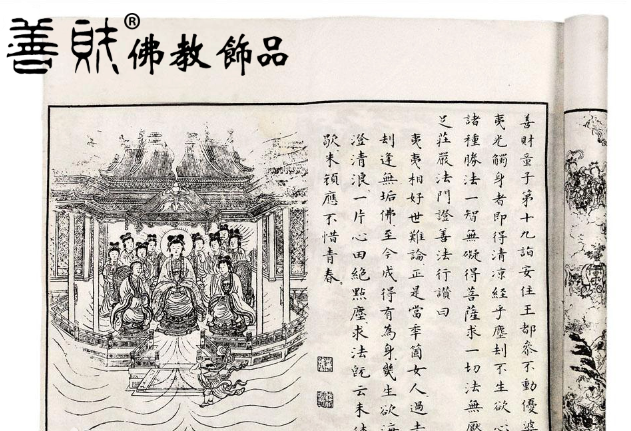 善財® 佛教飾品
善財童子第十九詣安住王都叅不動優婆
夷光觸身者即得清凉經乎塵刹不生欲心
諸種勝法一智無礙得菩薩求一切法無厭
足莊嚴法門證善法行讚曰
夷夷相好世難論正是當年箇女人過去
刼逢無垢佛至今成得有為身幾生欲海
澄清浪一片心田絕點塵求法既云未
歇来頻應不惜青春